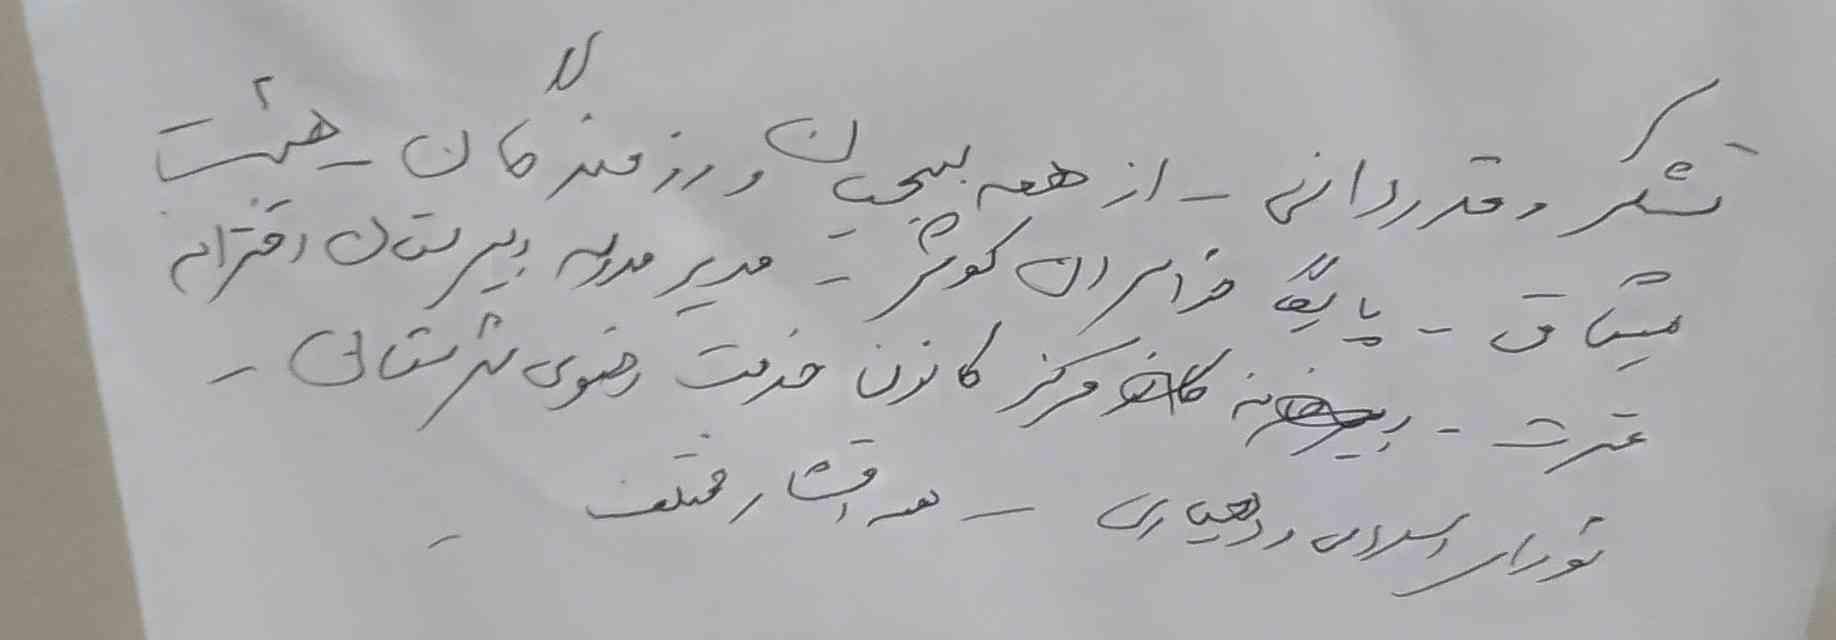 تشکر و قدردانی - از همه بسیجیان و رزمندگان - هیئت
میثاق - پایگاه خواهران کوثر - مدیر مدرسه دبیرستان دخترانه
عترت - دبیرخانه مرکز کانون خدمت رضوی شهرستانی -
شورای اسلامی و دهیاری - همه اقشار مختلف -